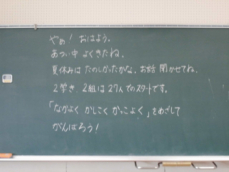 やぁ！ おはよう。
あつい中 よくきたね。
夏休みは たのしかったかな。お話 聞かせてね。
2学き 2組は 27人でのスタートです。
「なかよく かしこく かっこよく」をめざして
がんばろう！